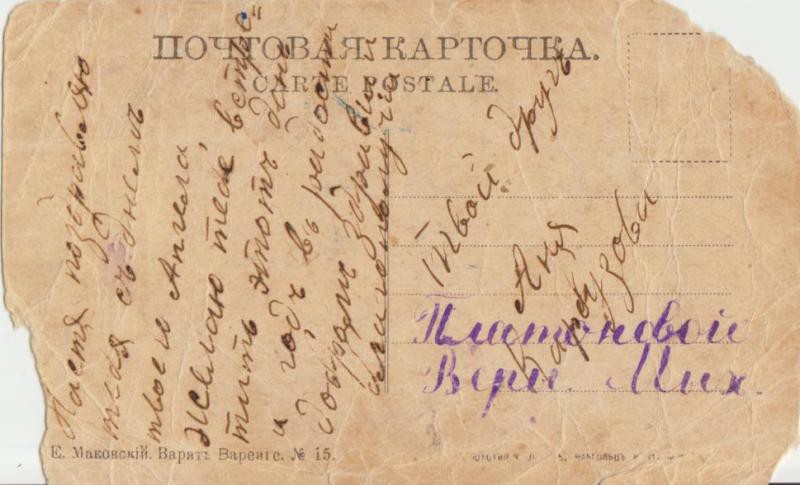 ПОЧТОВАЯ КАРТОЧКА.
CARTE POSTALE.
Настя поздравляю
тебя съ днемъ
твоего Ангела
Желаю тебе встре=
тить этотъ день
и годъ въ радости
добромъ здравiи и
благополучiи
Твой другъ
Аня
Платоновой
Веры Мих.
Е. Маковскій. Варятъ Варенье. № 15.